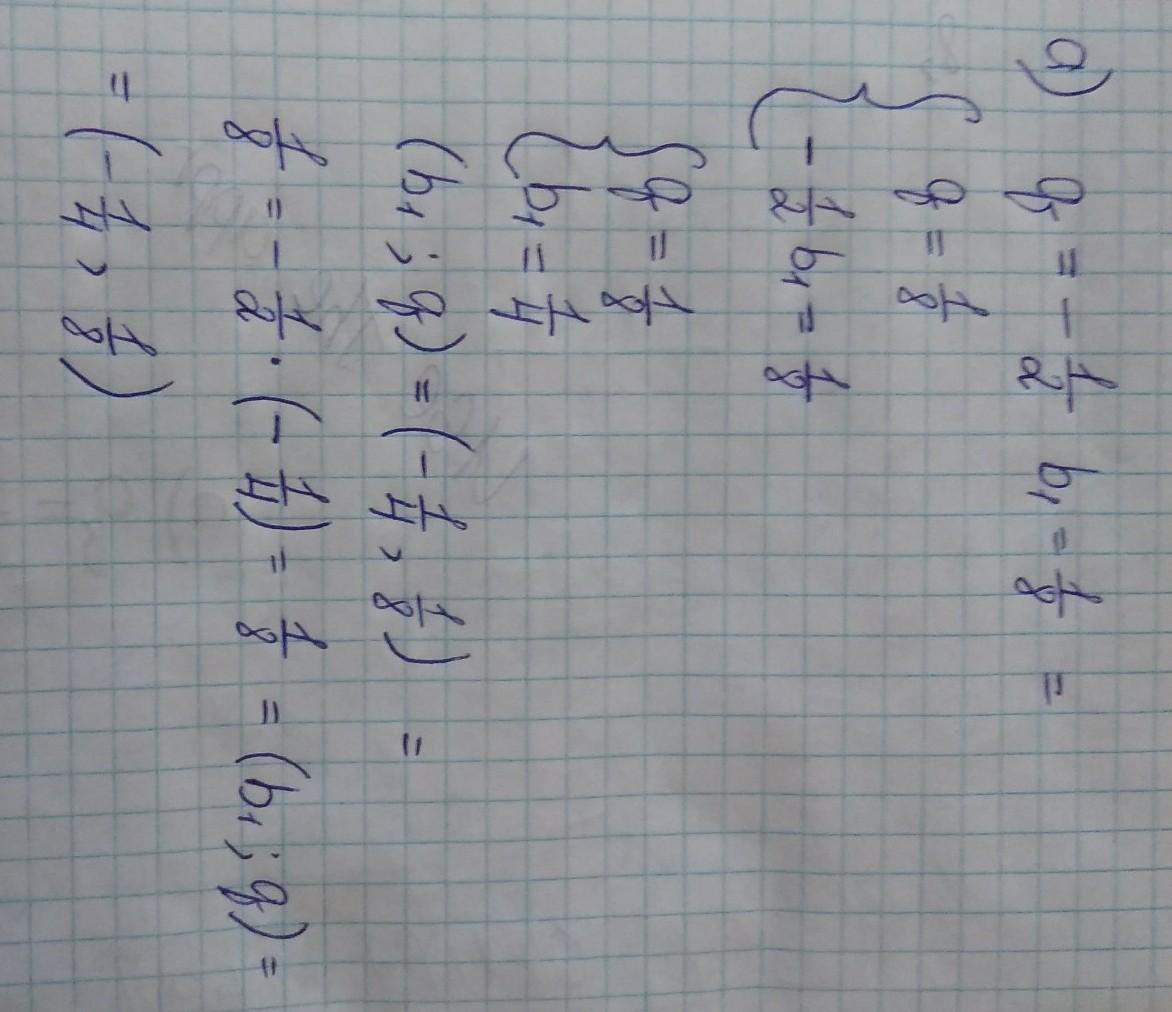 a) q = - 1/2 b₁ = 1/8 =
{ q = 1/8
- 1/2 b₁ = 1/8
{ q = 1/8
b₁ = 1/4
(b₁ ; q) = (- 1/4 , 1/8) =
1/8 = - 1/2 · (- 1/4) = 1/8 = (b₁ ; q) =
= (- 1/4 , 1/8)